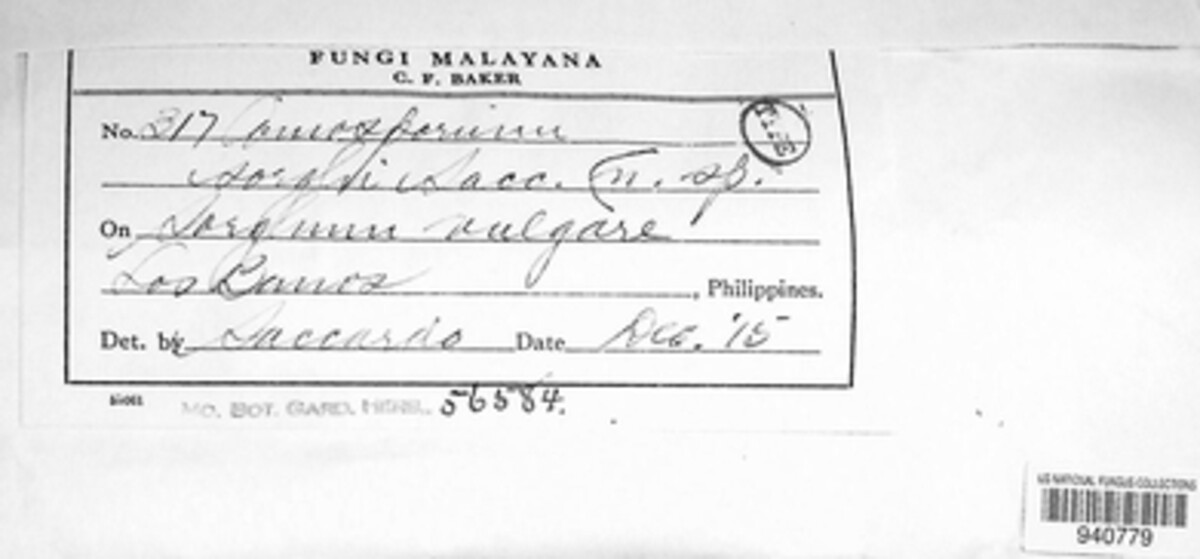 FUNGI MALAYANA
C. F. BAKER
No. 317 Coniosporium
Sorghi Sacc. (n. sp.
On Sorghum vulgare
Los Banos, Philippines.
Det. by Saccardo Date Dec. '15
MO. BOT. GARD. HERB. 56584.
US NATIONAL FUNGUS COLLECTIONS
940779